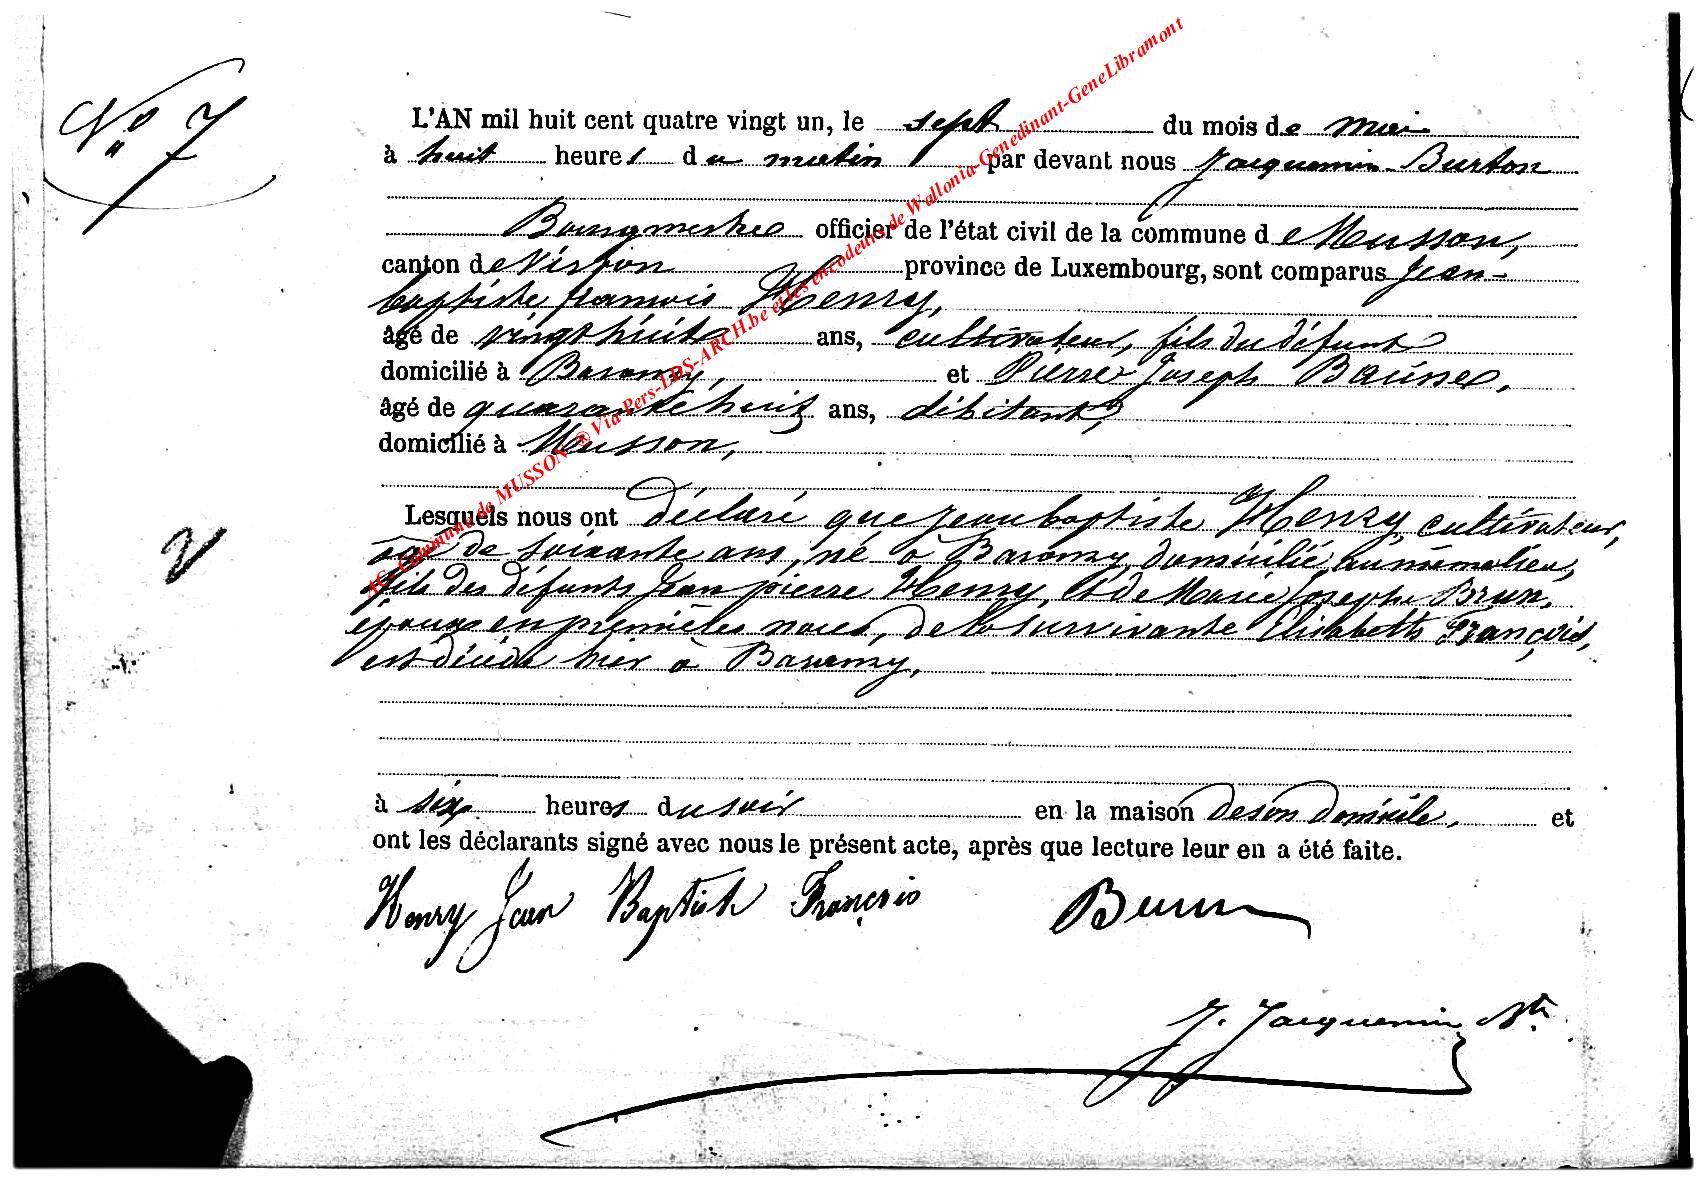 N° 7
L'AN mil huit cent quatre vingt un, le sept du mois de mai
à huit heures du matin par devant nous Jacquemin-Burton
Bourgmestre officier de l'état civil de la commune de Musson,
canton de Virton province de Luxembourg, sont comparus Jean-
baptiste françois Henry,
âgé de vingt huit ans, cultivateur, fils du défunt
domicilié à Baranzy, et Pierre Joseph
âgé de quarante huit ans, débitant,
domicilié à Musson,
Lesquels nous ont déclaré que jean baptiste Henry, cultivateur,
âgé de soixante ans, né à Baranzy, domicilié au même lieu,
fils des défunts Jean pierre Henry, et de Marie Josephe
époux en premières noces, de la survivante Elisabeth François,
est décédé hier à Baranzy,
à six heures du soir en la maison de son domicile, et
ont les déclarants signé avec nous le présent acte, après que lecture leur en a été faite.
Henry Jean Baptiste François
J. Jacquemin Btn
AC-Commune de MUSSON-® Via Pers-LDS-ARCH.be et les encodeurs de Wallonia-Genedinant-GeneLibramont